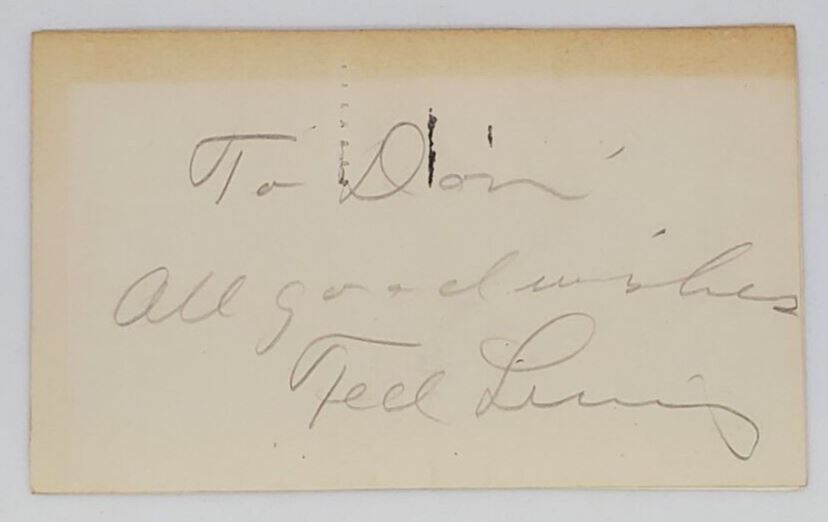 To Don
All good wishes
Ted Lewis